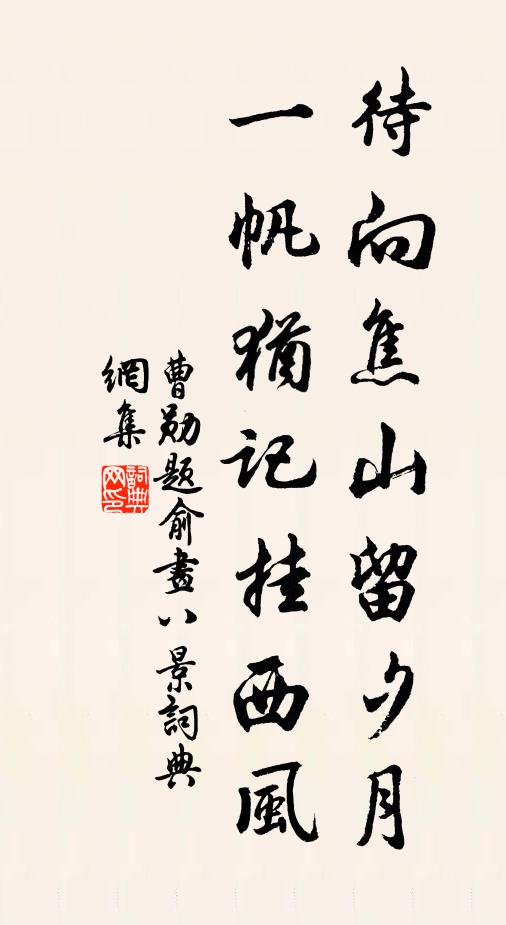 待向焦山留夕月
一帆猶记挂西風
曹勋題俞畫八景詞典
網集
詞典網印